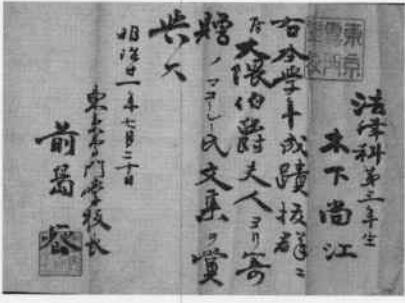 東京専門学校
法律科第三年生
木下尚江
右今学年成蹟抜群ニ
付大隈伯爵夫人ヨリ寄
贈ノマコーレー氏文集ヲ賞
与ス
明治廿一年七月二十日
東京専門学校長
前島密